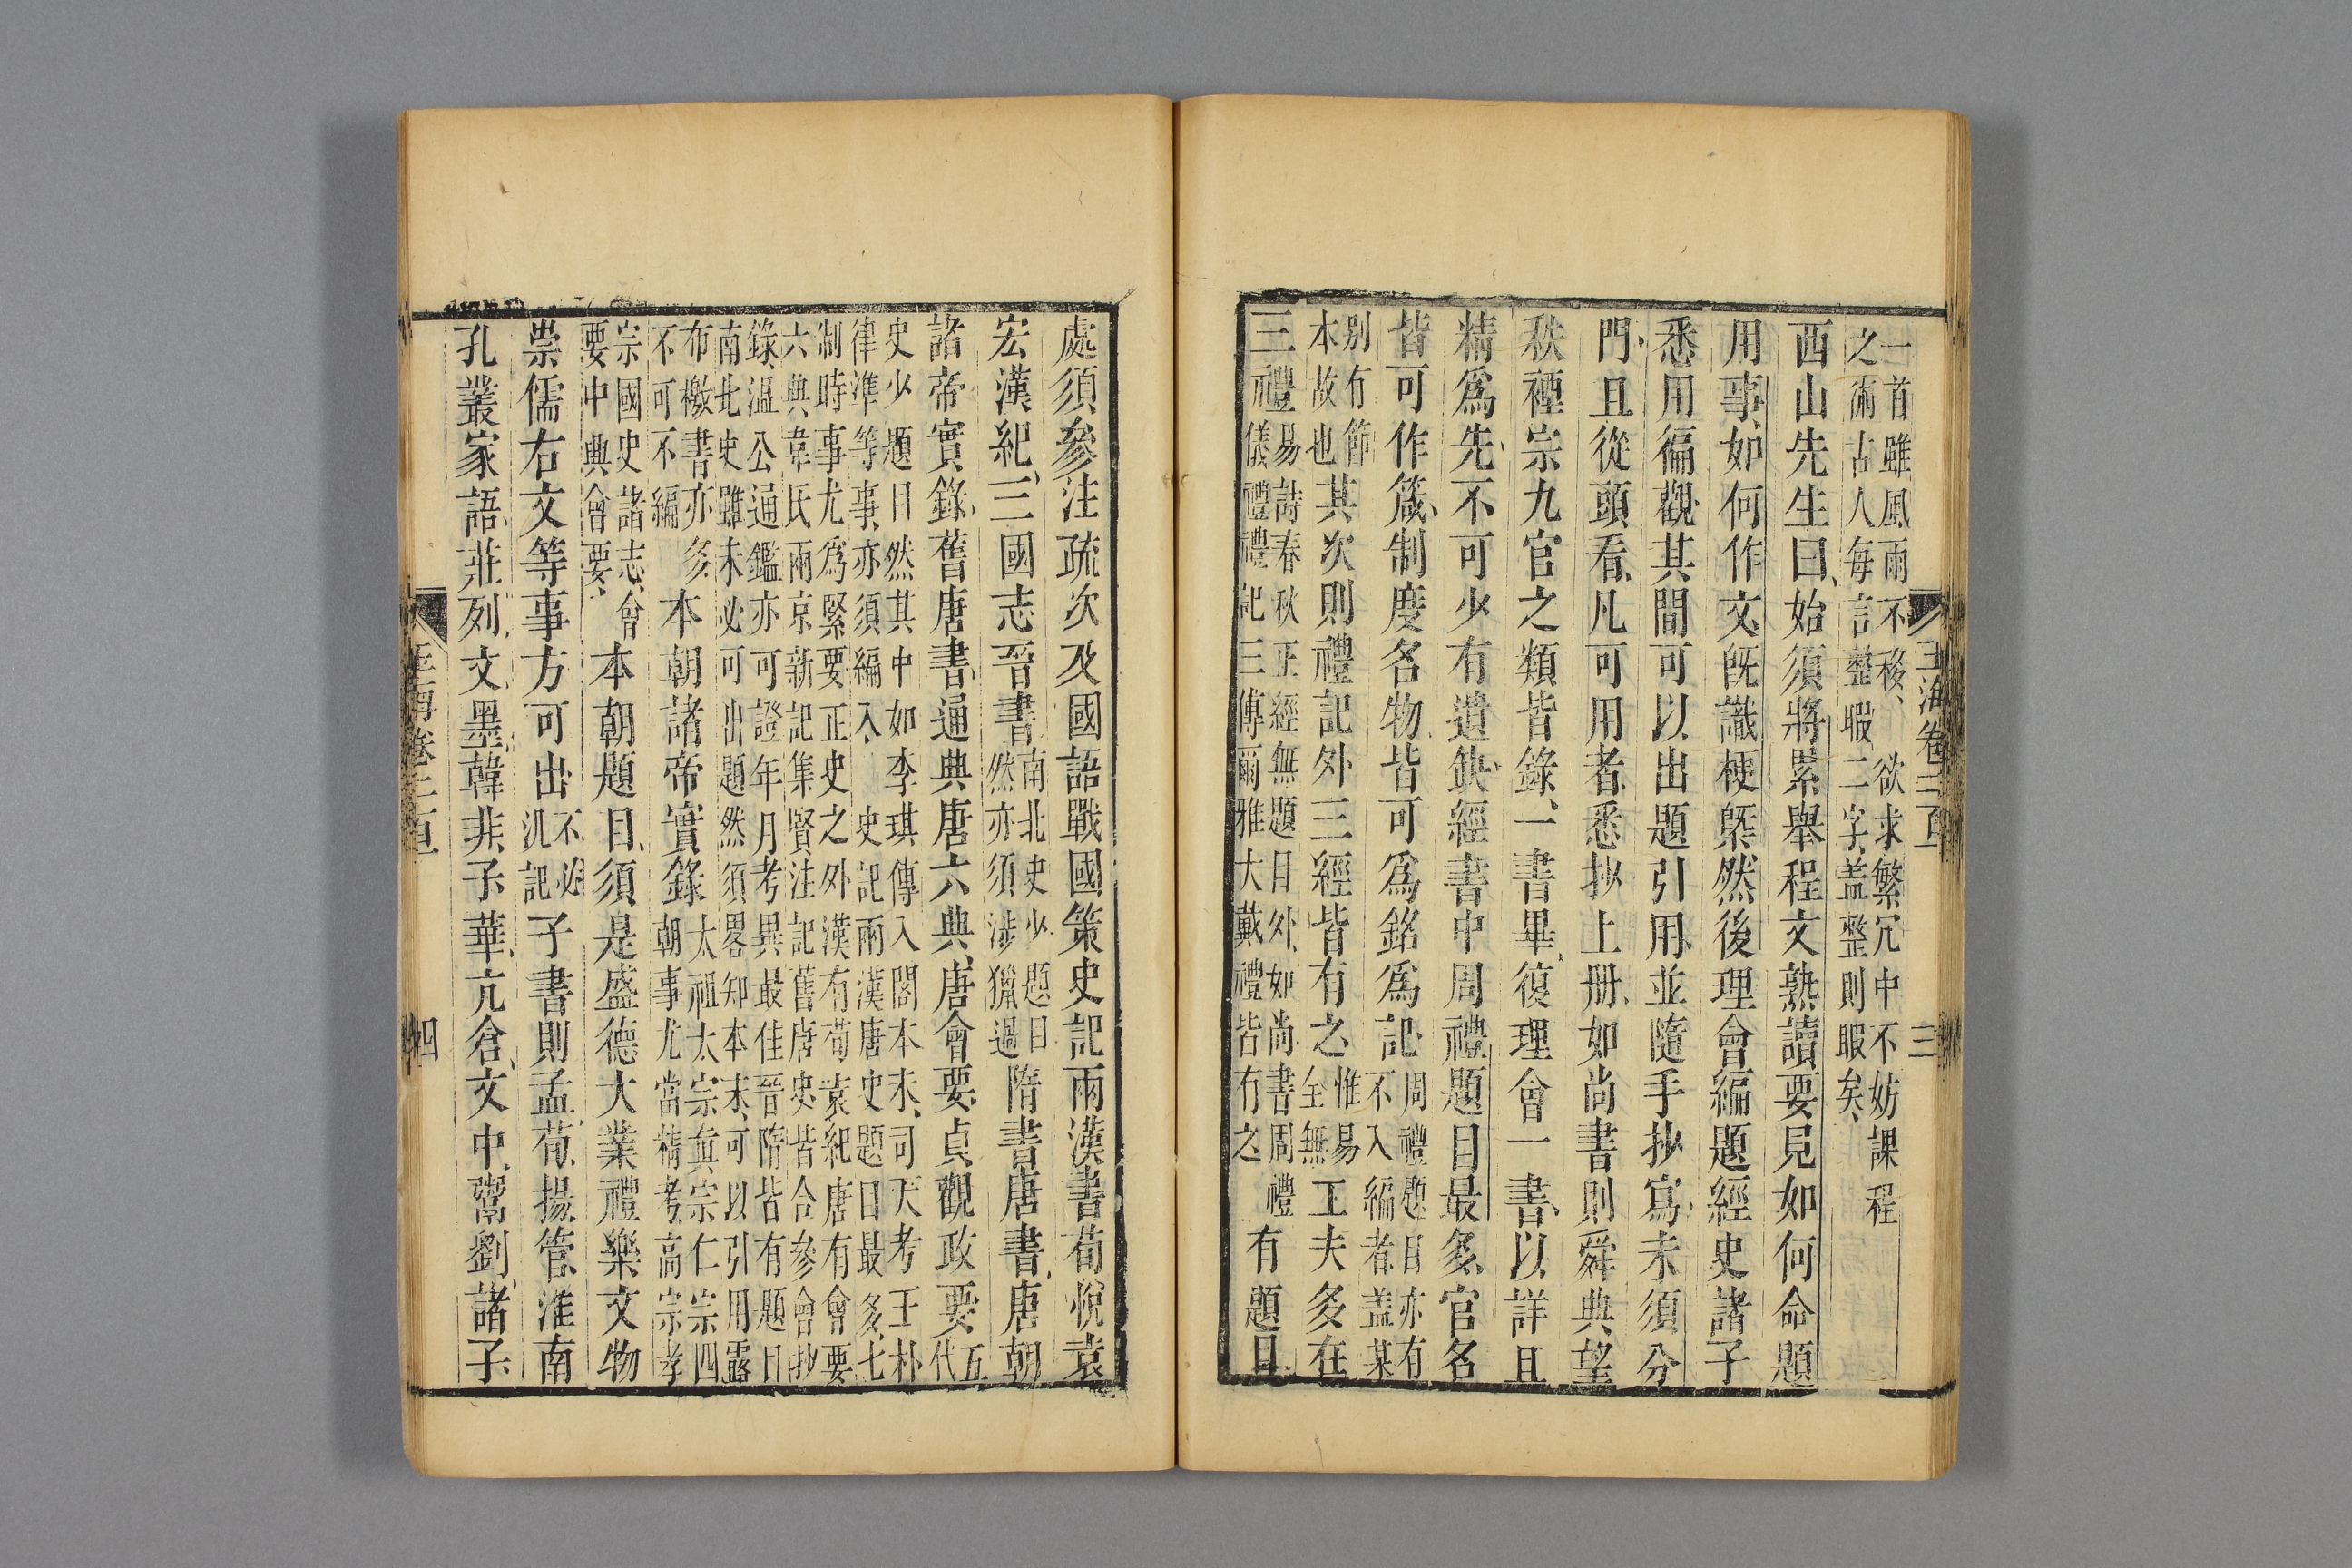 玉海卷二百一 三
一首雖風雨不移、欲求繁冗中不妨課程
之術古人每言整暇二字盖整則暇矣、
西山先生曰、始須將累舉程文熟讀要見如何命題
用事、如何作文、旣識梗槩然後理會編題經史諸子
悉用徧觀、其間可以出題引用、並隨手抄寫、未須分
門、且從頭看、凡可用者悉抄上册、如尚書則舜典望
秩禋宗九官之類皆錄、一書畢、復理會一書、以詳且
精爲先、不可少有遺缺、經書中周禮題目最多、官名
皆可作箴、制度名物皆可爲銘爲記、周禮題目亦有
不入編者、盖某
别有節
本故也其次則禮記外三經皆有之、惟易
全無工夫多在
三禮易詩春秋正經無題目外、如尚書周禮
儀禮禮記三傳爾雅大戴禮皆有之有題目、
處須參注疏次及國語戰國策史記兩漢書荀悅袁
宏漢紀、三國志晉書南北史少題目
然亦須涉獵過隋書唐書、唐朝
諸帝實錄、舊唐書、通典唐六典、唐會要、貞觀政要、五
代
史少題目然其中如李琪傳入閣本末、司天考王朴
律準等事、亦須編入史記兩漢唐史題目最多、七
制時事尤爲緊要正史之外漢有荀袁紀唐有會要
六典韋氏兩京新記集賢注記舊唐史皆合參會抄
錄、溫公通鑑亦可證年月考異最佳晉隋皆有題目
南北史雖未必可出題然須畧知本末、可以引用露
布檄書亦多
不可不編本朝諸帝實錄太祖太宗眞宗仁宗四
朝事尤當精考、高宗孝
宗國史諸志、會
要中典會要、本朝題目、須是盛德大業禮樂文物
崇儒右文等事方可出、不必
汎記子書則孟荀、揚、管、淮南
孔叢家語、莊列、文、墨、韓非、子華、亢倉、文中、鬻劉、諸子
玉海卷二百一 四